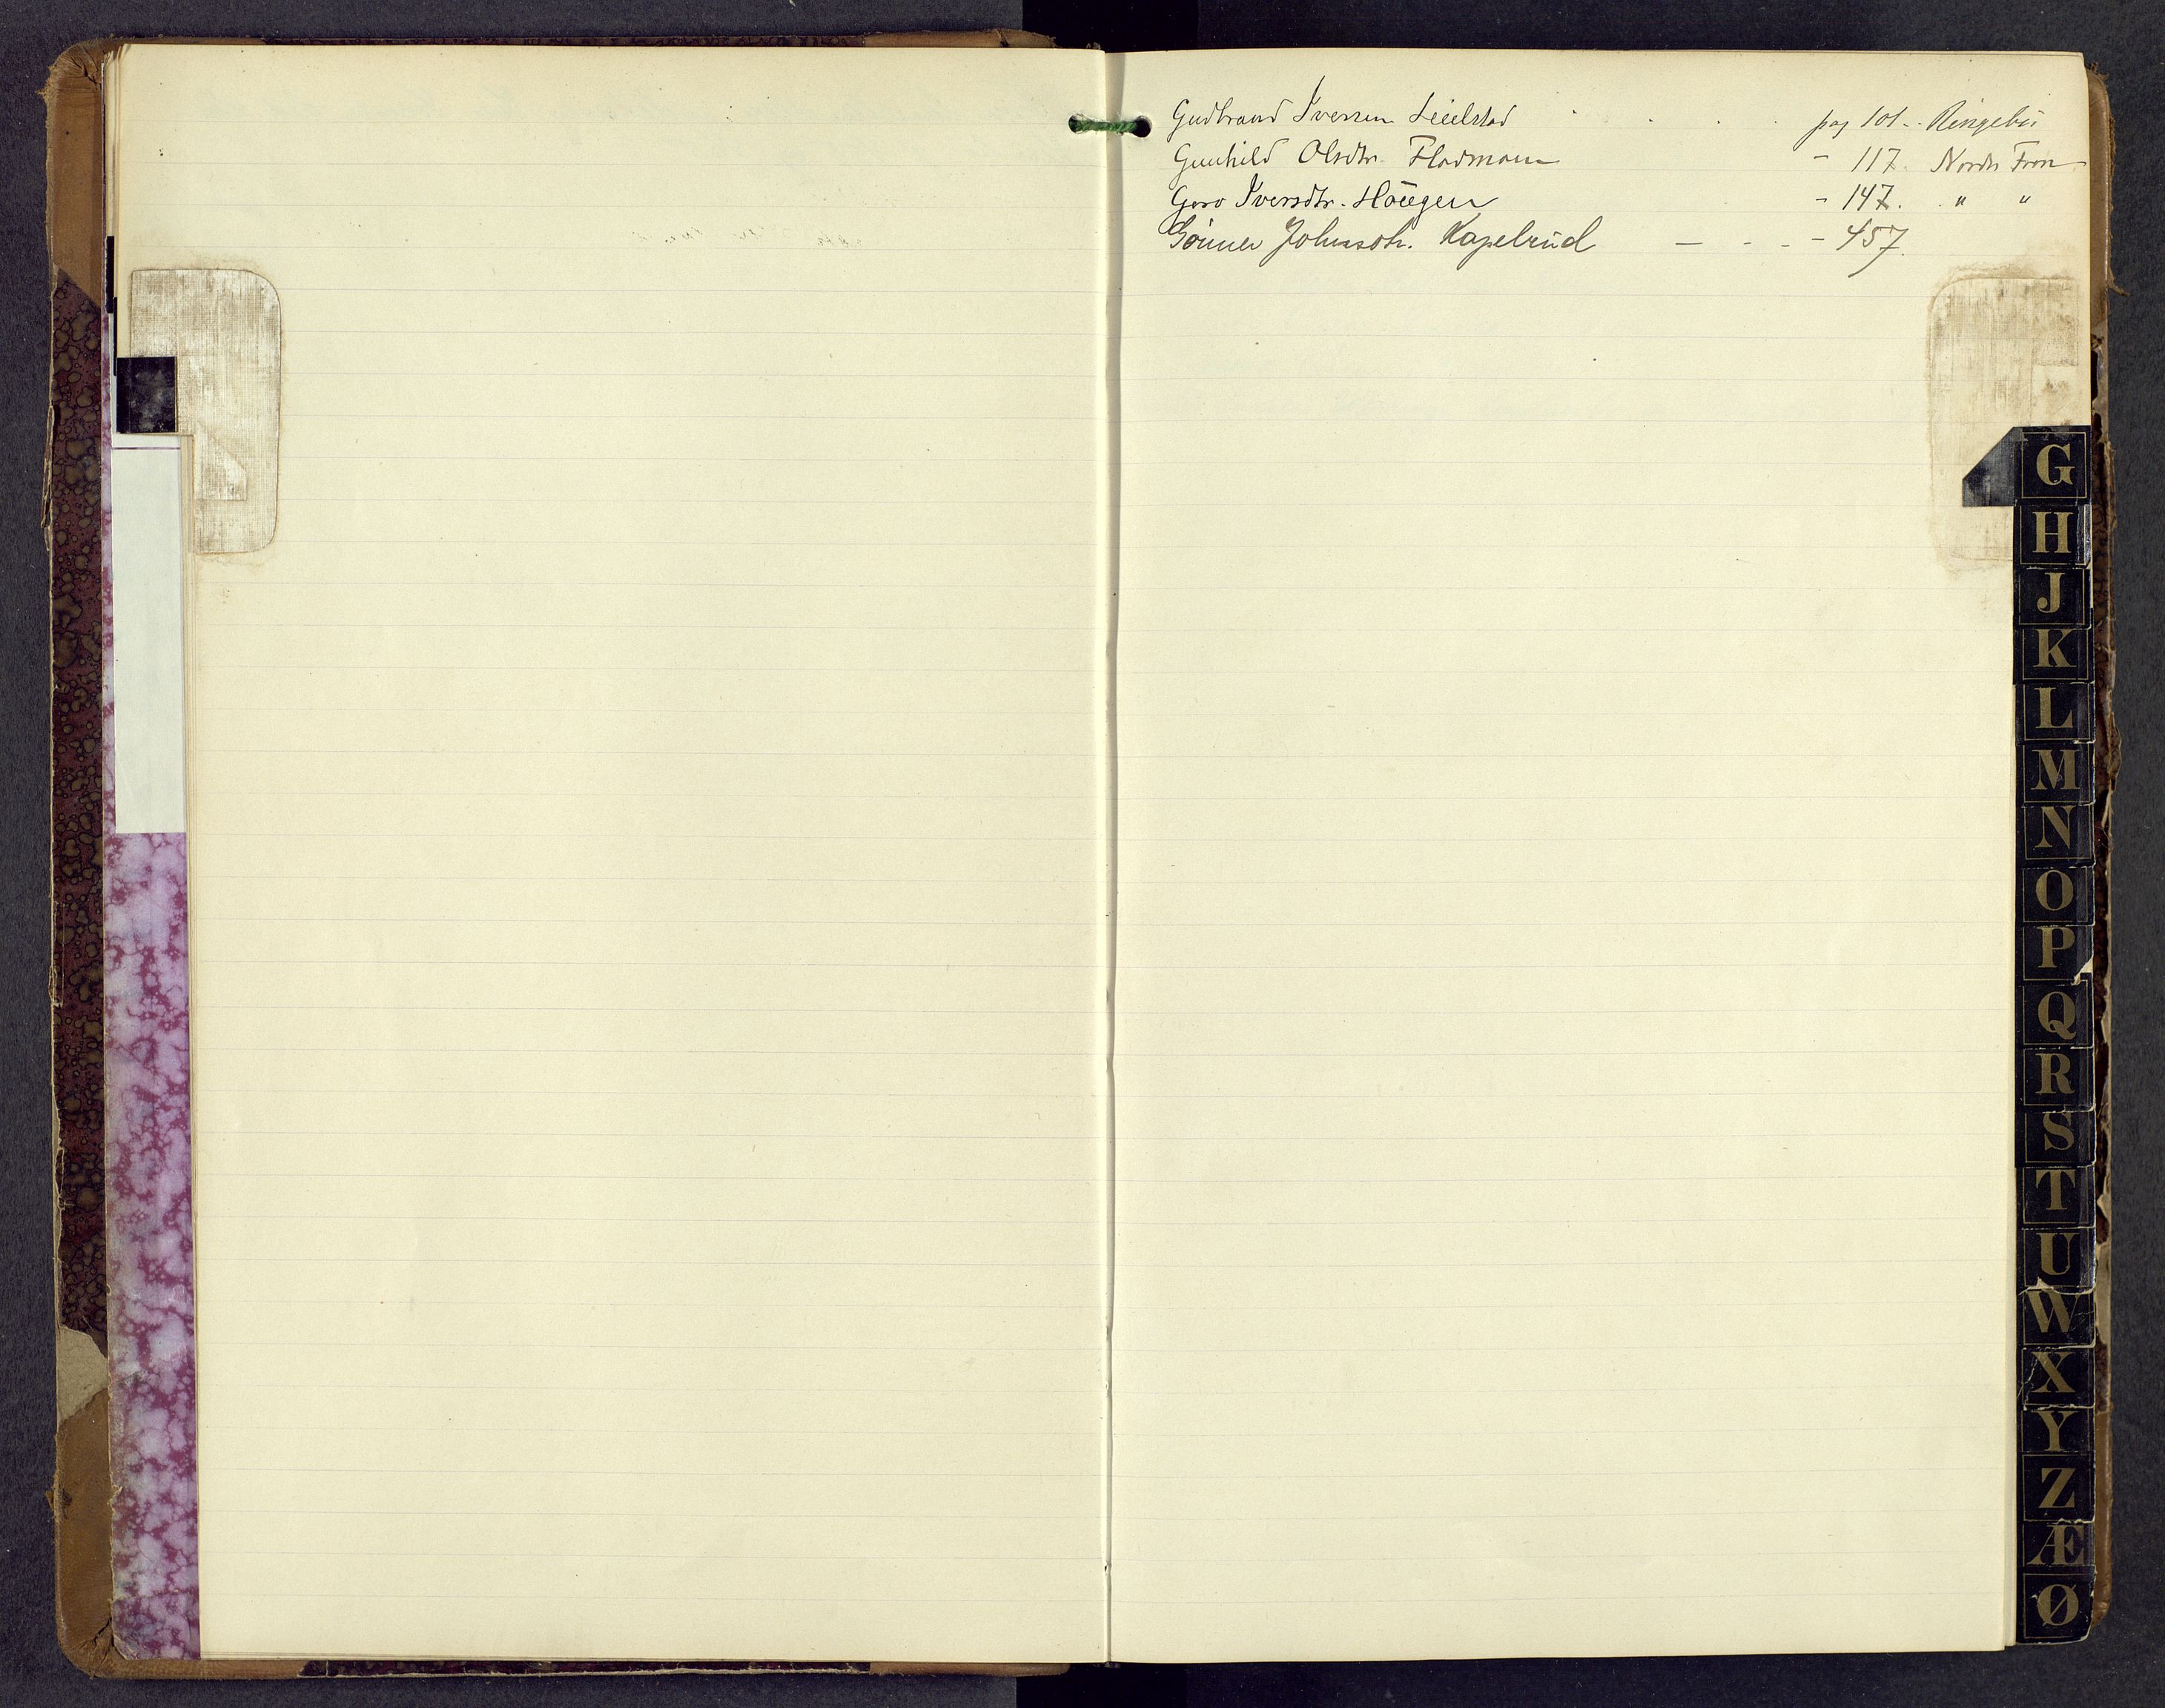 Gudbrand Iversen Leielstad . . . . pag 101 - Ringebu
Gunhild Olsdtr. Fladmoen - 117. Nordre Fron
Goro Iversdtr. Haugen - 147. " "
Gunner Johnsdtr. Kapelrud — - - - 457.
G
H
J
K
L
M
N
O
P
Q
R
S
T
U
W
X
Y
Z
Æ
Ø